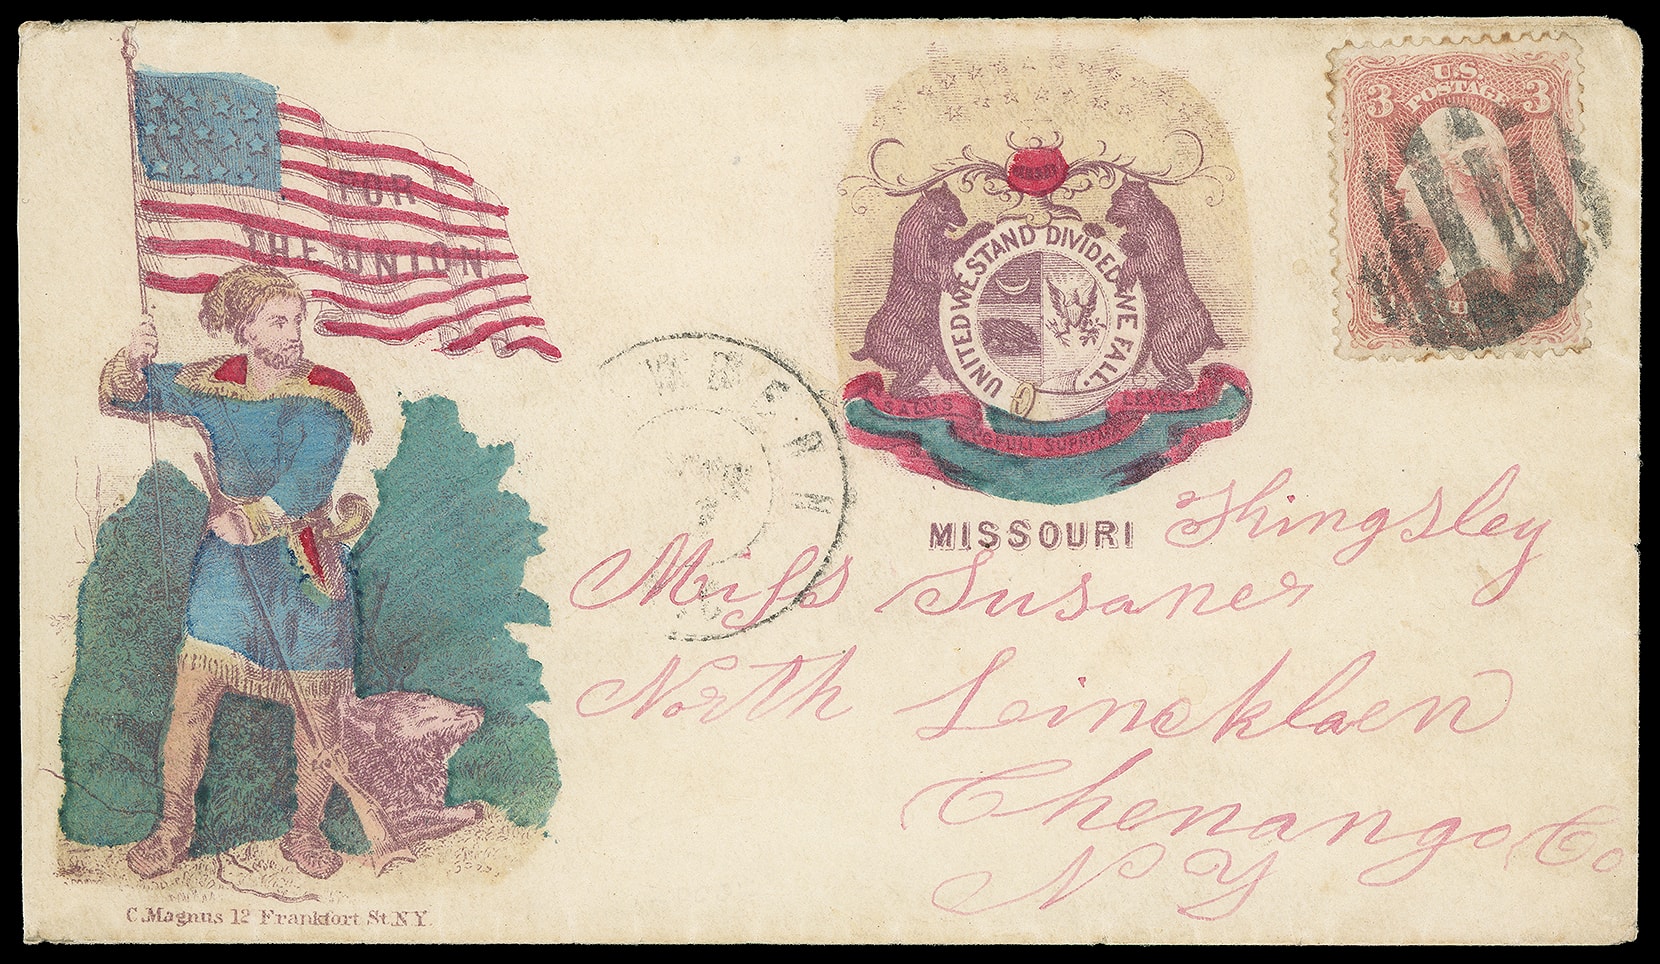 FOR
THE UNION
U.S.
POSTAGE
3 3
UNITED WE STAND DIVIDED WE FALL.
SALUS
MISSOURI
Miss Susaner
North Lincklaen
Chenango Co
N Y
C. Magnus 12 Frankfort St. N.Y.